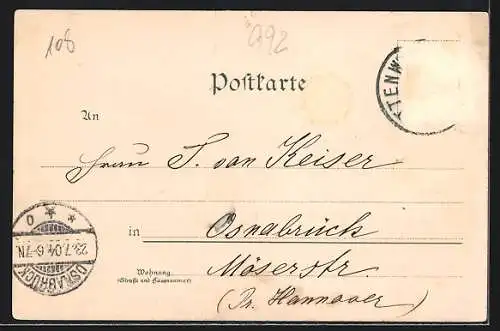 108
992
Postkarte
TENW
An
Frau T. van Keiser
in Osnabrück
Wohnung
(Straße und Hausnummer)
Möserstr
(Pr. Hannover)
OSNABRÜCK
23.7.04.6-7N.